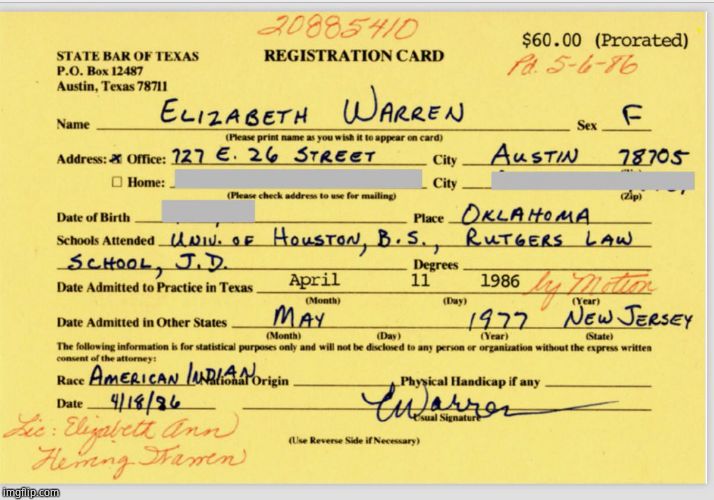 20885410
$60.00 (Prorated)
STATE BAR OF TEXAS REGISTRATION CARD
P.O. Box 12487 Pd. 5-6-86
Austin, Texas 78711
Name ELIZABETH WARREN Sex F
(Please print name as you wish it to appear on card)
Address: ☒ Office: 727 E. 26 STREET City AUSTIN 78705
☐ Home: City
(Please check address to use for mailing) (Zip)
Date of Birth Place OKLAHOMA
Schools Attended UNIV. OF HOUSTON, B.S., RUTGERS LAW
SCHOOL, J.D. Degrees
Date Admitted to Practice in Texas April 11 1986 by Motion
(Month) (Day) (Year)
Date Admitted in Other States MAY 1977 NEW JERSEY
(Month) (Day) (Year) (State)
The following information is for statistical purposes only and will not be disclosed to any person or organization without the express written
consent of the attorney:
Race AMERICAN INDIAN National Origin Physical Handicap if any
Date 4/18/86 EWarren
Usual Signature
Lic: Elizabeth Ann
Herring Warren
(Use Reverse Side if Necessary)
imgflip.com